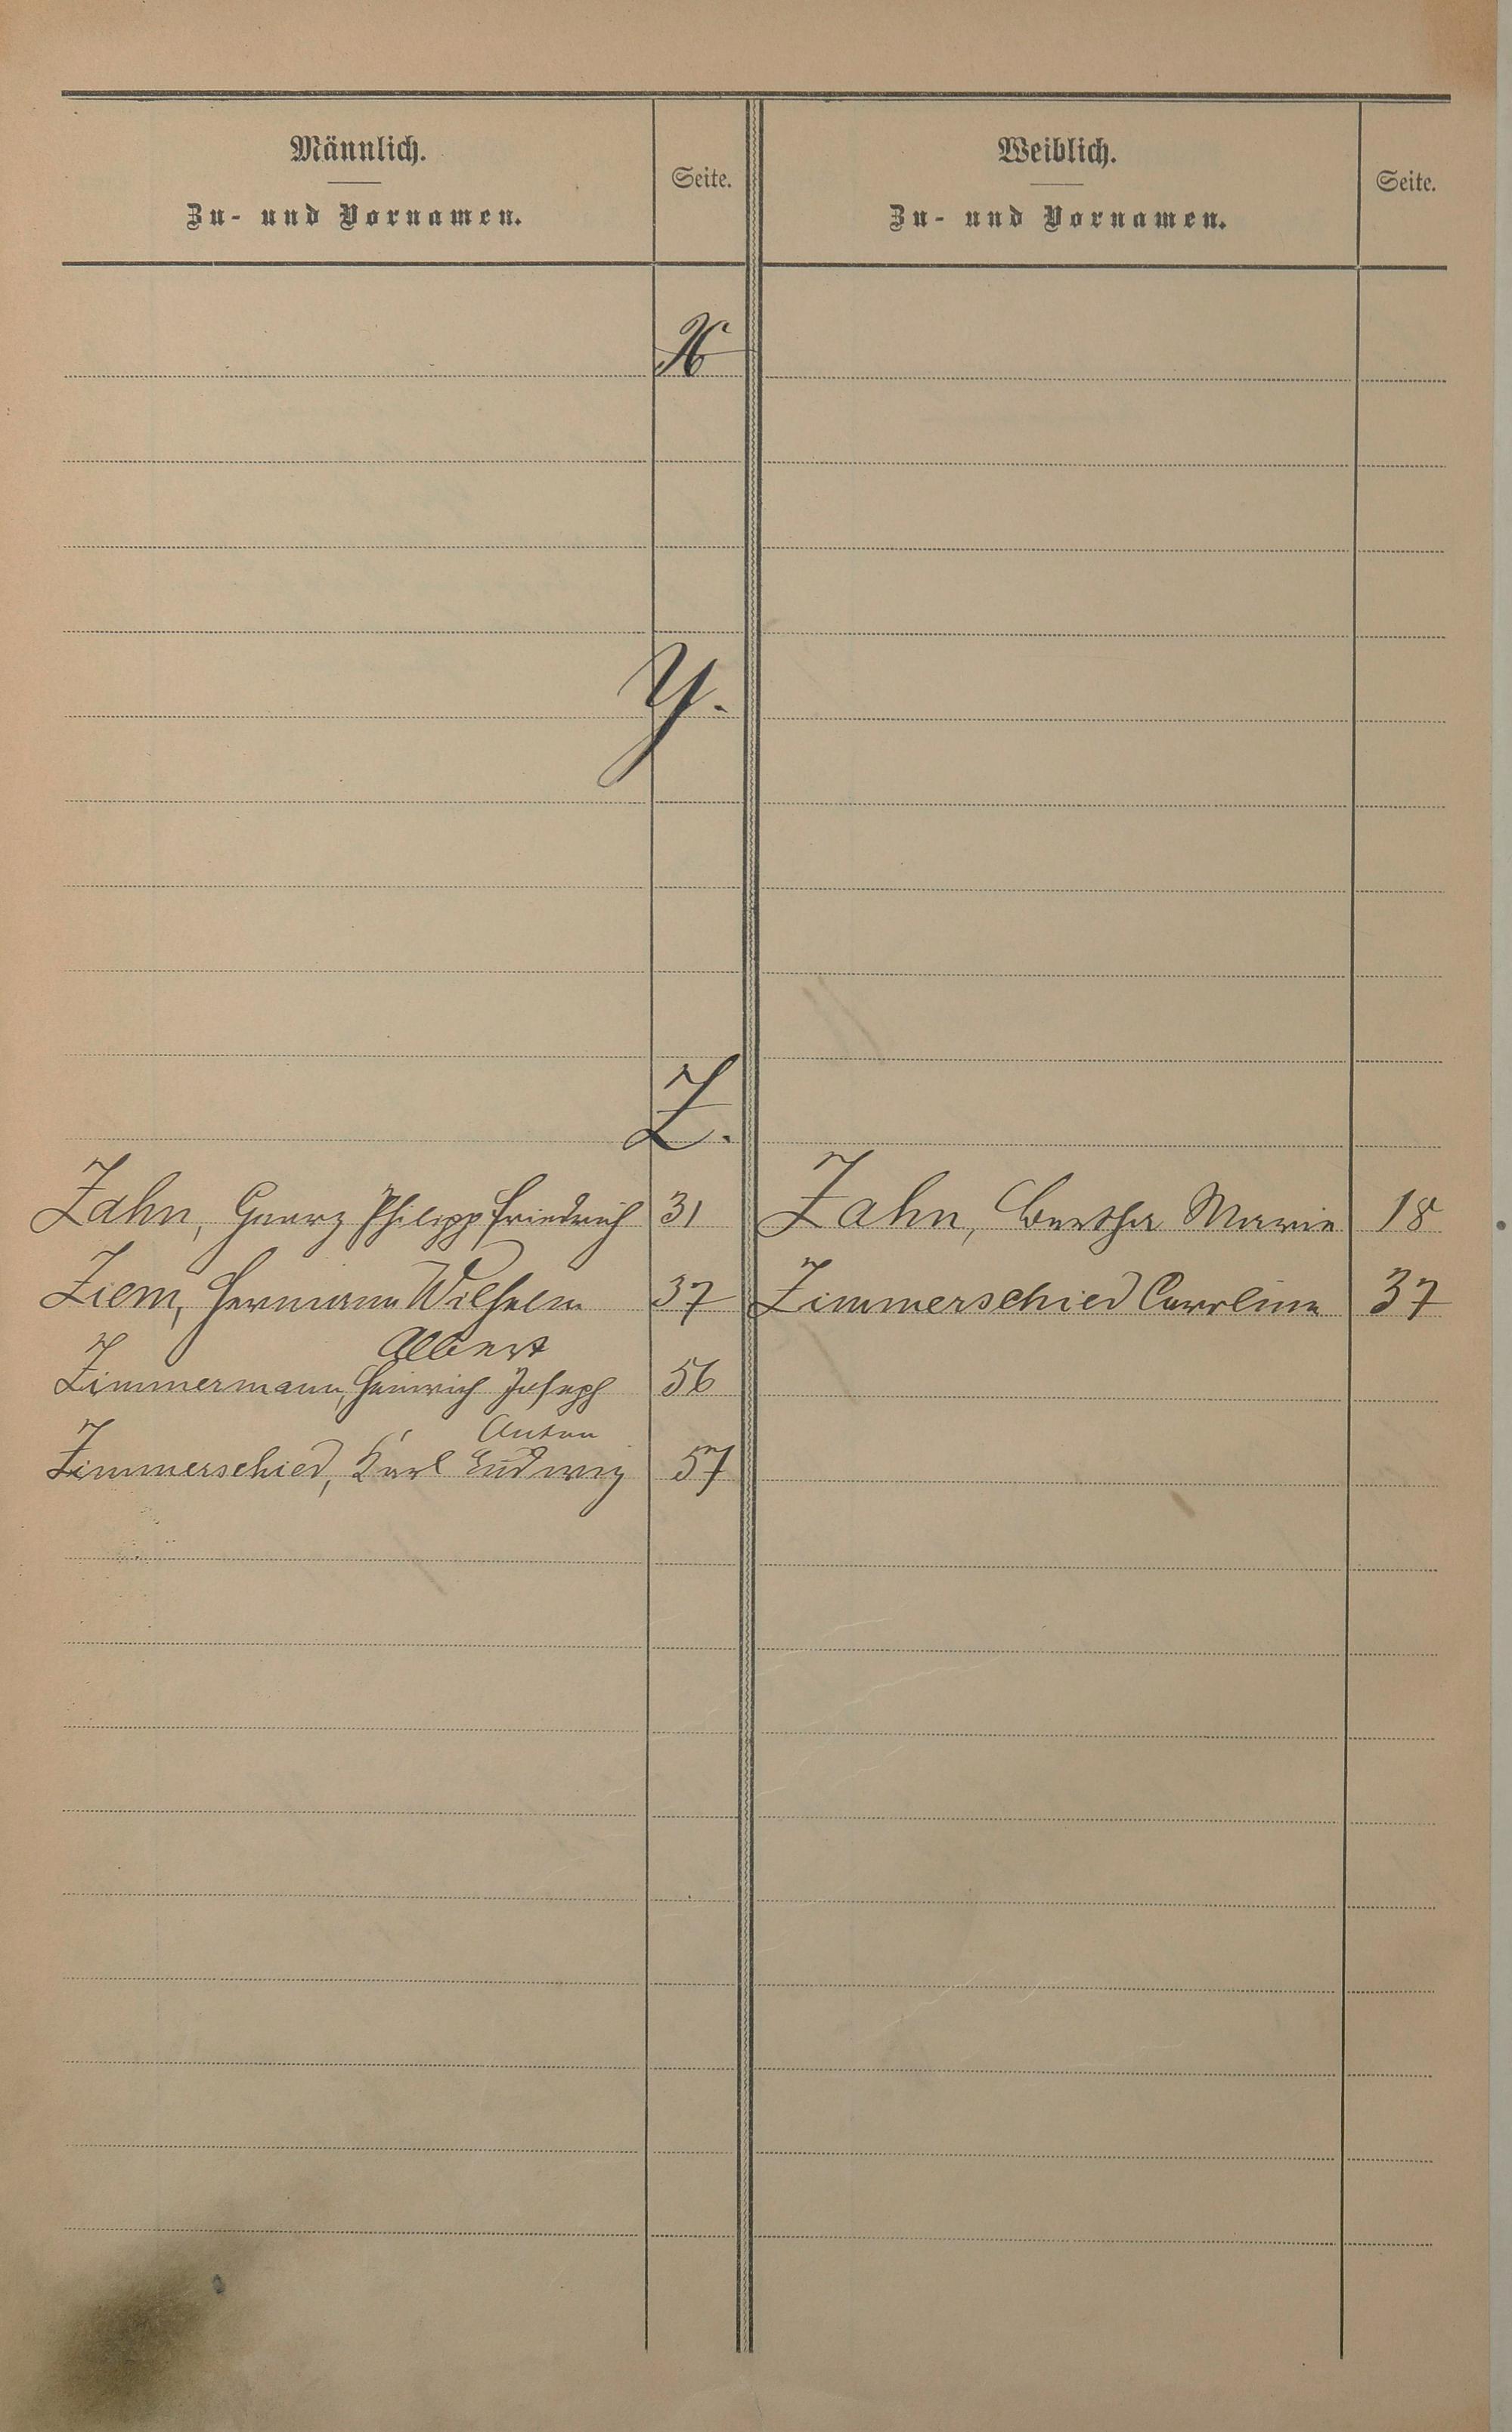 Männlich.
Zu- und Vornamen.
Seite.
Weiblich.
Zu- und Vornamen.
Seite.
X
Y.
Z.
Zahn, Georg Philipp Friedrich 31 Zahn, Bertha Marie 18
Ziem, Hermann Wilhelm 37 Zimmerschied Caroline 37
Albert
Zimmermann, Heinrich Joseph 56
Anton
Zimmerschied, Karl Ludwig 57